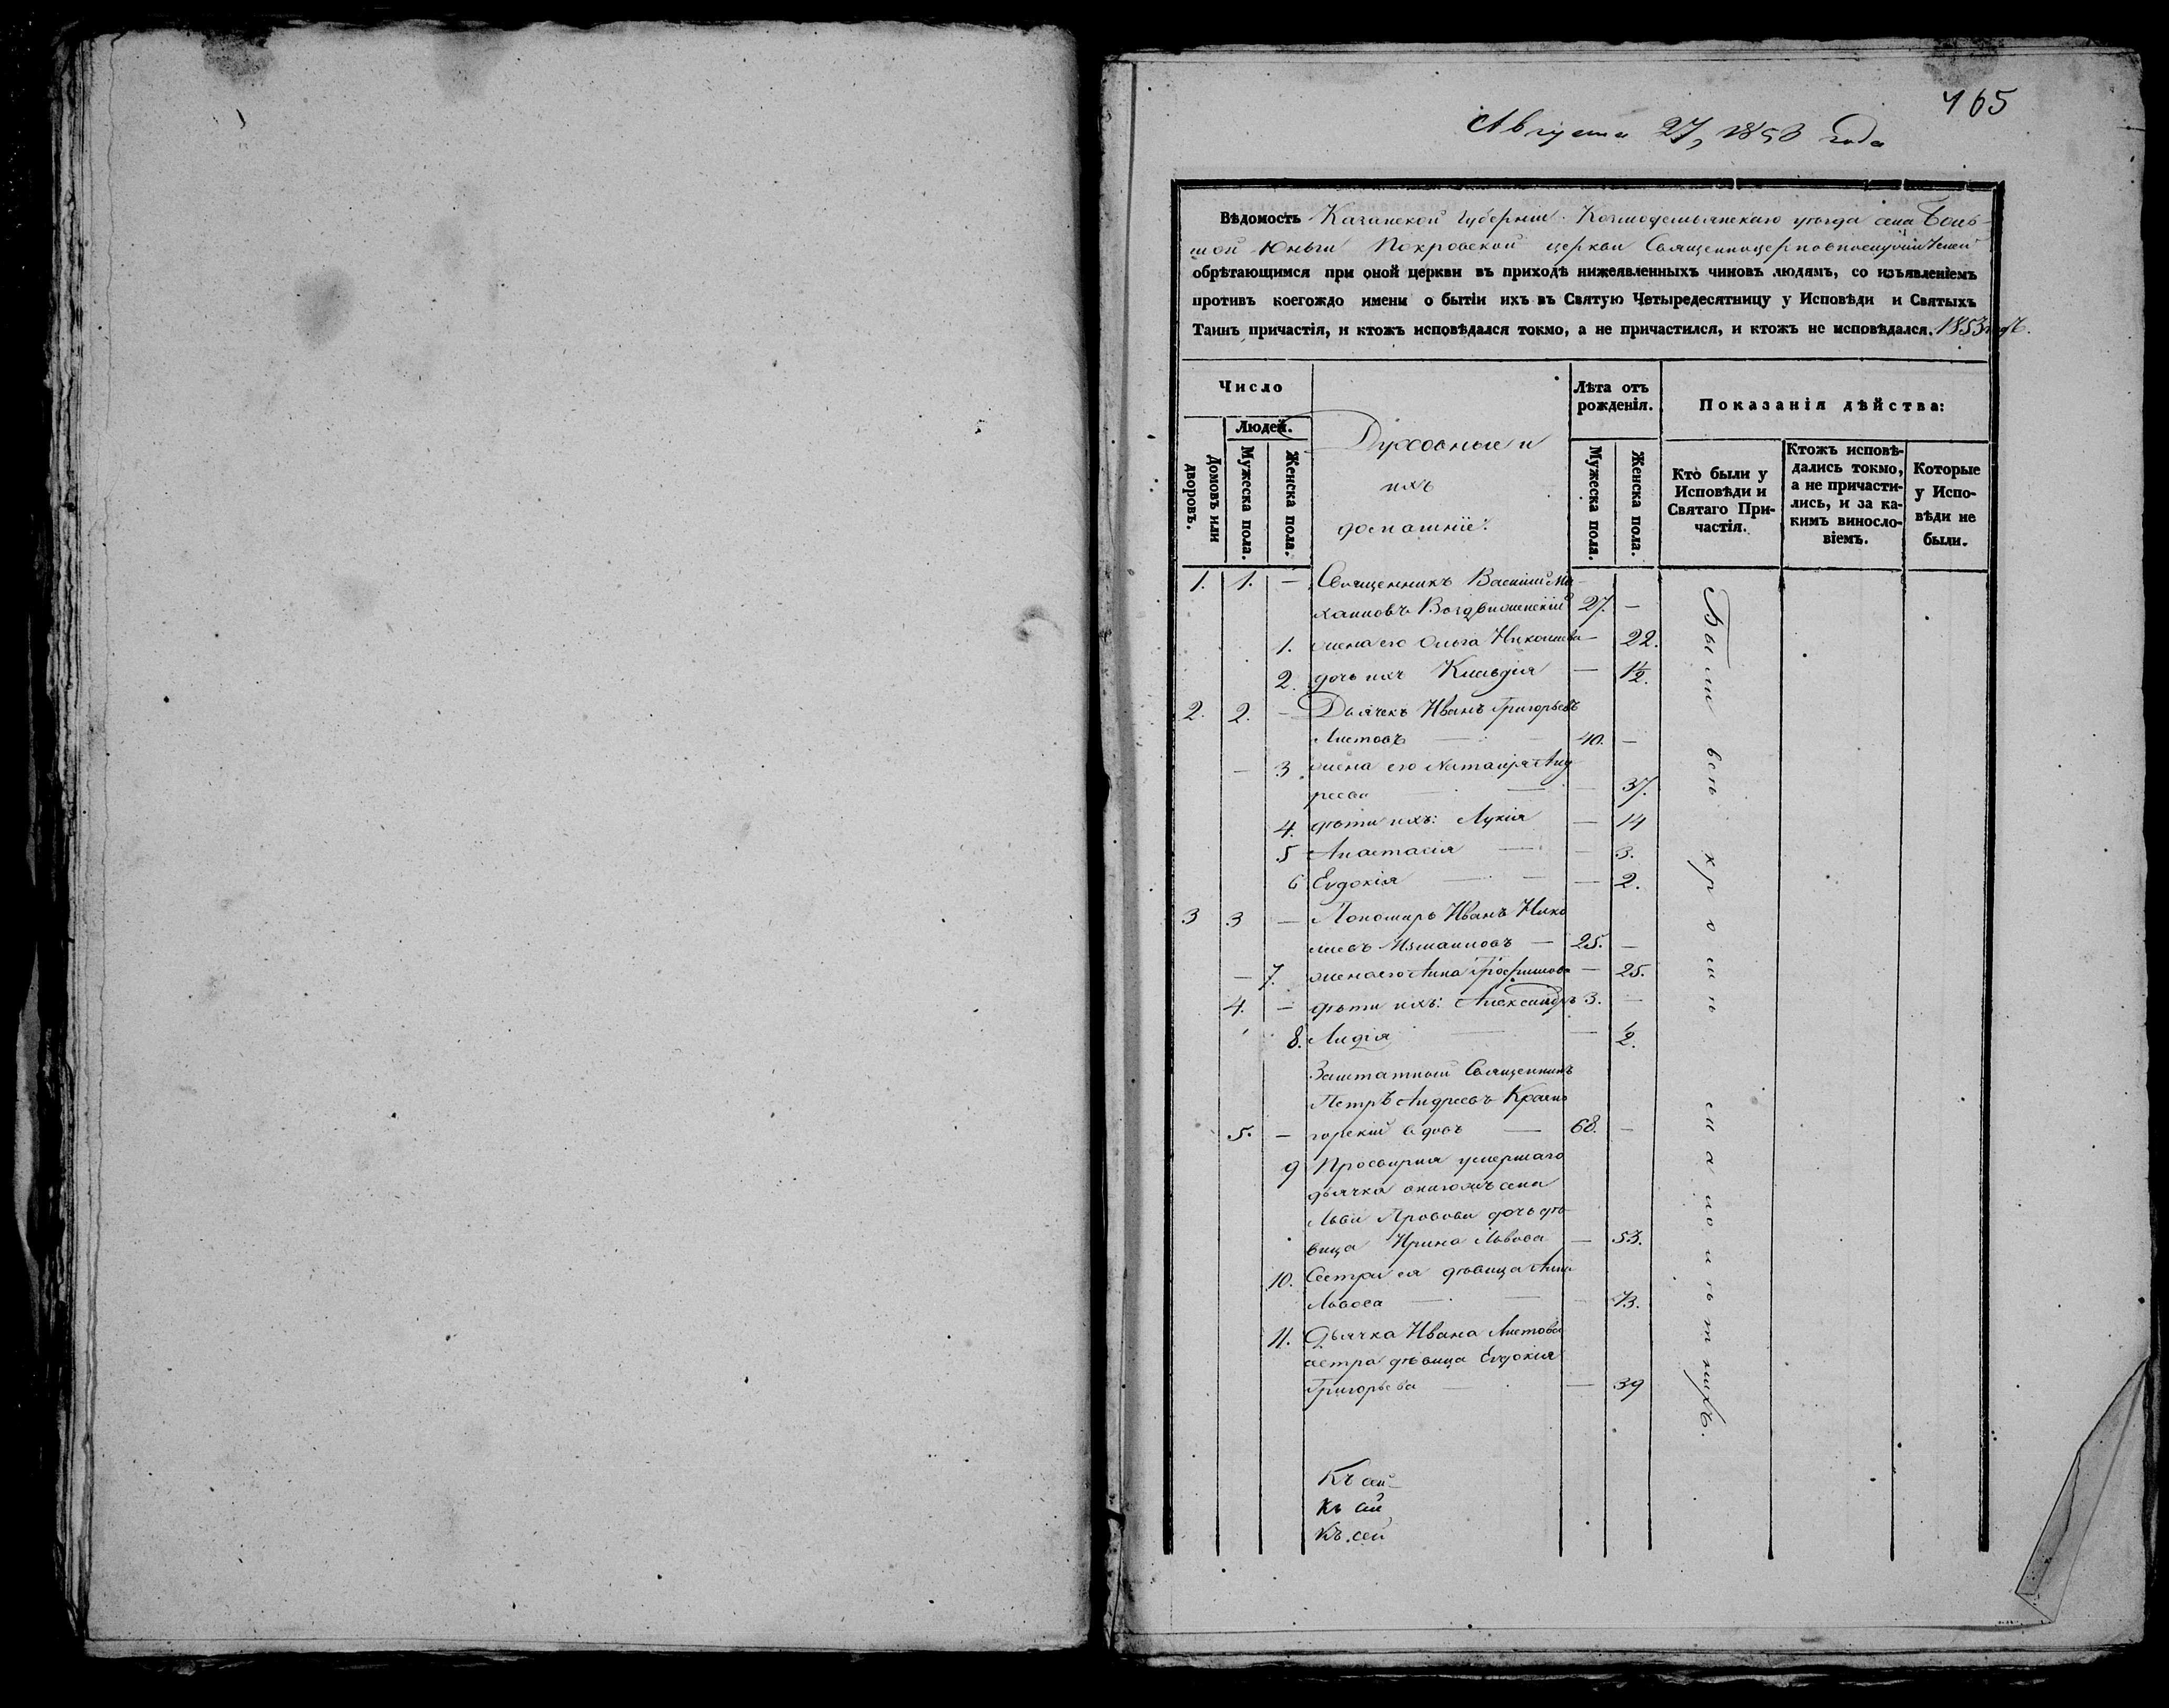 165
Августа 27, 1853 года
Вѣдомость Казанской Губерніи Козмодемьянскаго уѣзда села Боль-
шой Юньги Покровской церкви Священноцерковнослужителей
обрѣтающимся при оной церкви въ приходѣ нижеявленныхъ чиновъ людямъ, со изъявленіемъ
противъ коегождо имени о бытіи ихъ въ Святую Четыредесятницу у Исповѣди и Святыхъ
Таинъ причастія, и ктожъ исповѣдался токмо, а не причастился, и ктожъ не исповѣдался. 1853 годъ.
Число
Людей.
Домовъ или дворовъ.
Мужеска пола.
Женска пола.
Духовные и
ихъ
домашніе:
Лѣта отъ
рожденія.
Мужеска пола.
Женска пола.
Показанія дѣйства:
Кто были у
Исповѣди и
Святаго При-
частія.
Ктожъ исповѣ-
дались токмо,
а не причасти-
лись, и за ка-
кимъ виносло-
віемъ.
Которые
у Испо-
вѣди не
были.
1. 1. — Священникъ Василій Ми-
хаиловъ Воздвиженскій 27. —
1. жена его Ольга Николаева — 22.
2. дочь ихъ Клавдія — 1½.
2. 2. — Дьячекъ Иванъ Григорьевъ
Листовъ — 40. —
— 3. жена его Наталія Анд
реева — — 37.
4. дѣти ихъ: Лукія — 14
5 Анастасія — — 3.
6 Евдокія — — 2.
3 3 — Пономарь Иванъ Нико
лаевъ Измаиловъ — 25. —
— 7. жена его Анна Трофимова — 25.
4. — дѣти ихъ: Александръ 3. —
8. Лидія — — ½.
Заштатный Священникъ
Петръ Андреевъ Красно
5. — горскій вдовъ — 68. —
9 Просвирня умершаго
дьячка села
Льва дочь дѣ-
вица Ирина Львова — 53.
10. Сестра ея дѣвица Анна
Львова — — 73.
11. Дьячка Ивана Листова
сестра дѣвица Евдокія
Григорьева — — 39
Были всѣ кромѣ малолѣтнихъ.
Къ сей
Къ сей
Къ сей